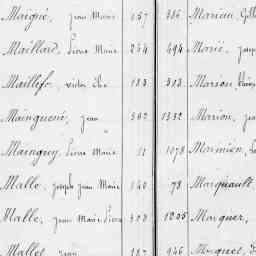 Maigné, Jean Marie 157 386 Marian,
Maillard, Pierre Marie 254 494 Marié, Joseph
Maillefer, victor 183 513 Marion,
Mainguené, Jean 592 1352 Marion, Jean
Mainguy, Pierre Marie 11 1078 Marmion,
Malle, Joseph Jean Marie 140 78 Marquault,
Malle, Jean Marie Pierre 503 1205 Marquer,
Mallet, Jean 187 946 Marquet,